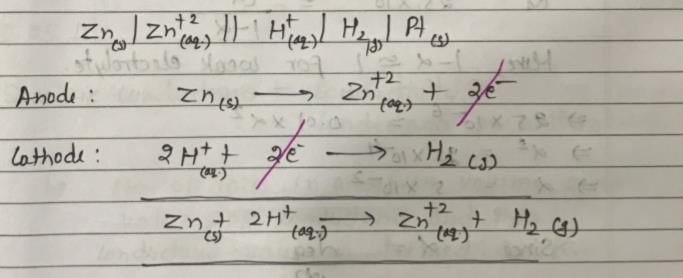 Zn(s) | Zn+2(aq.) || H+(aq) | H2(g) | Pt(s)
Anode : Zn(s) ⟶ Zn+2(aq) + 2e-
Cathode : 2H+(aq.) + 2e- ⟶ H2(g)
Zn(s) + 2H+(aq.) ⟶ Zn+2(aq) + H2(g)